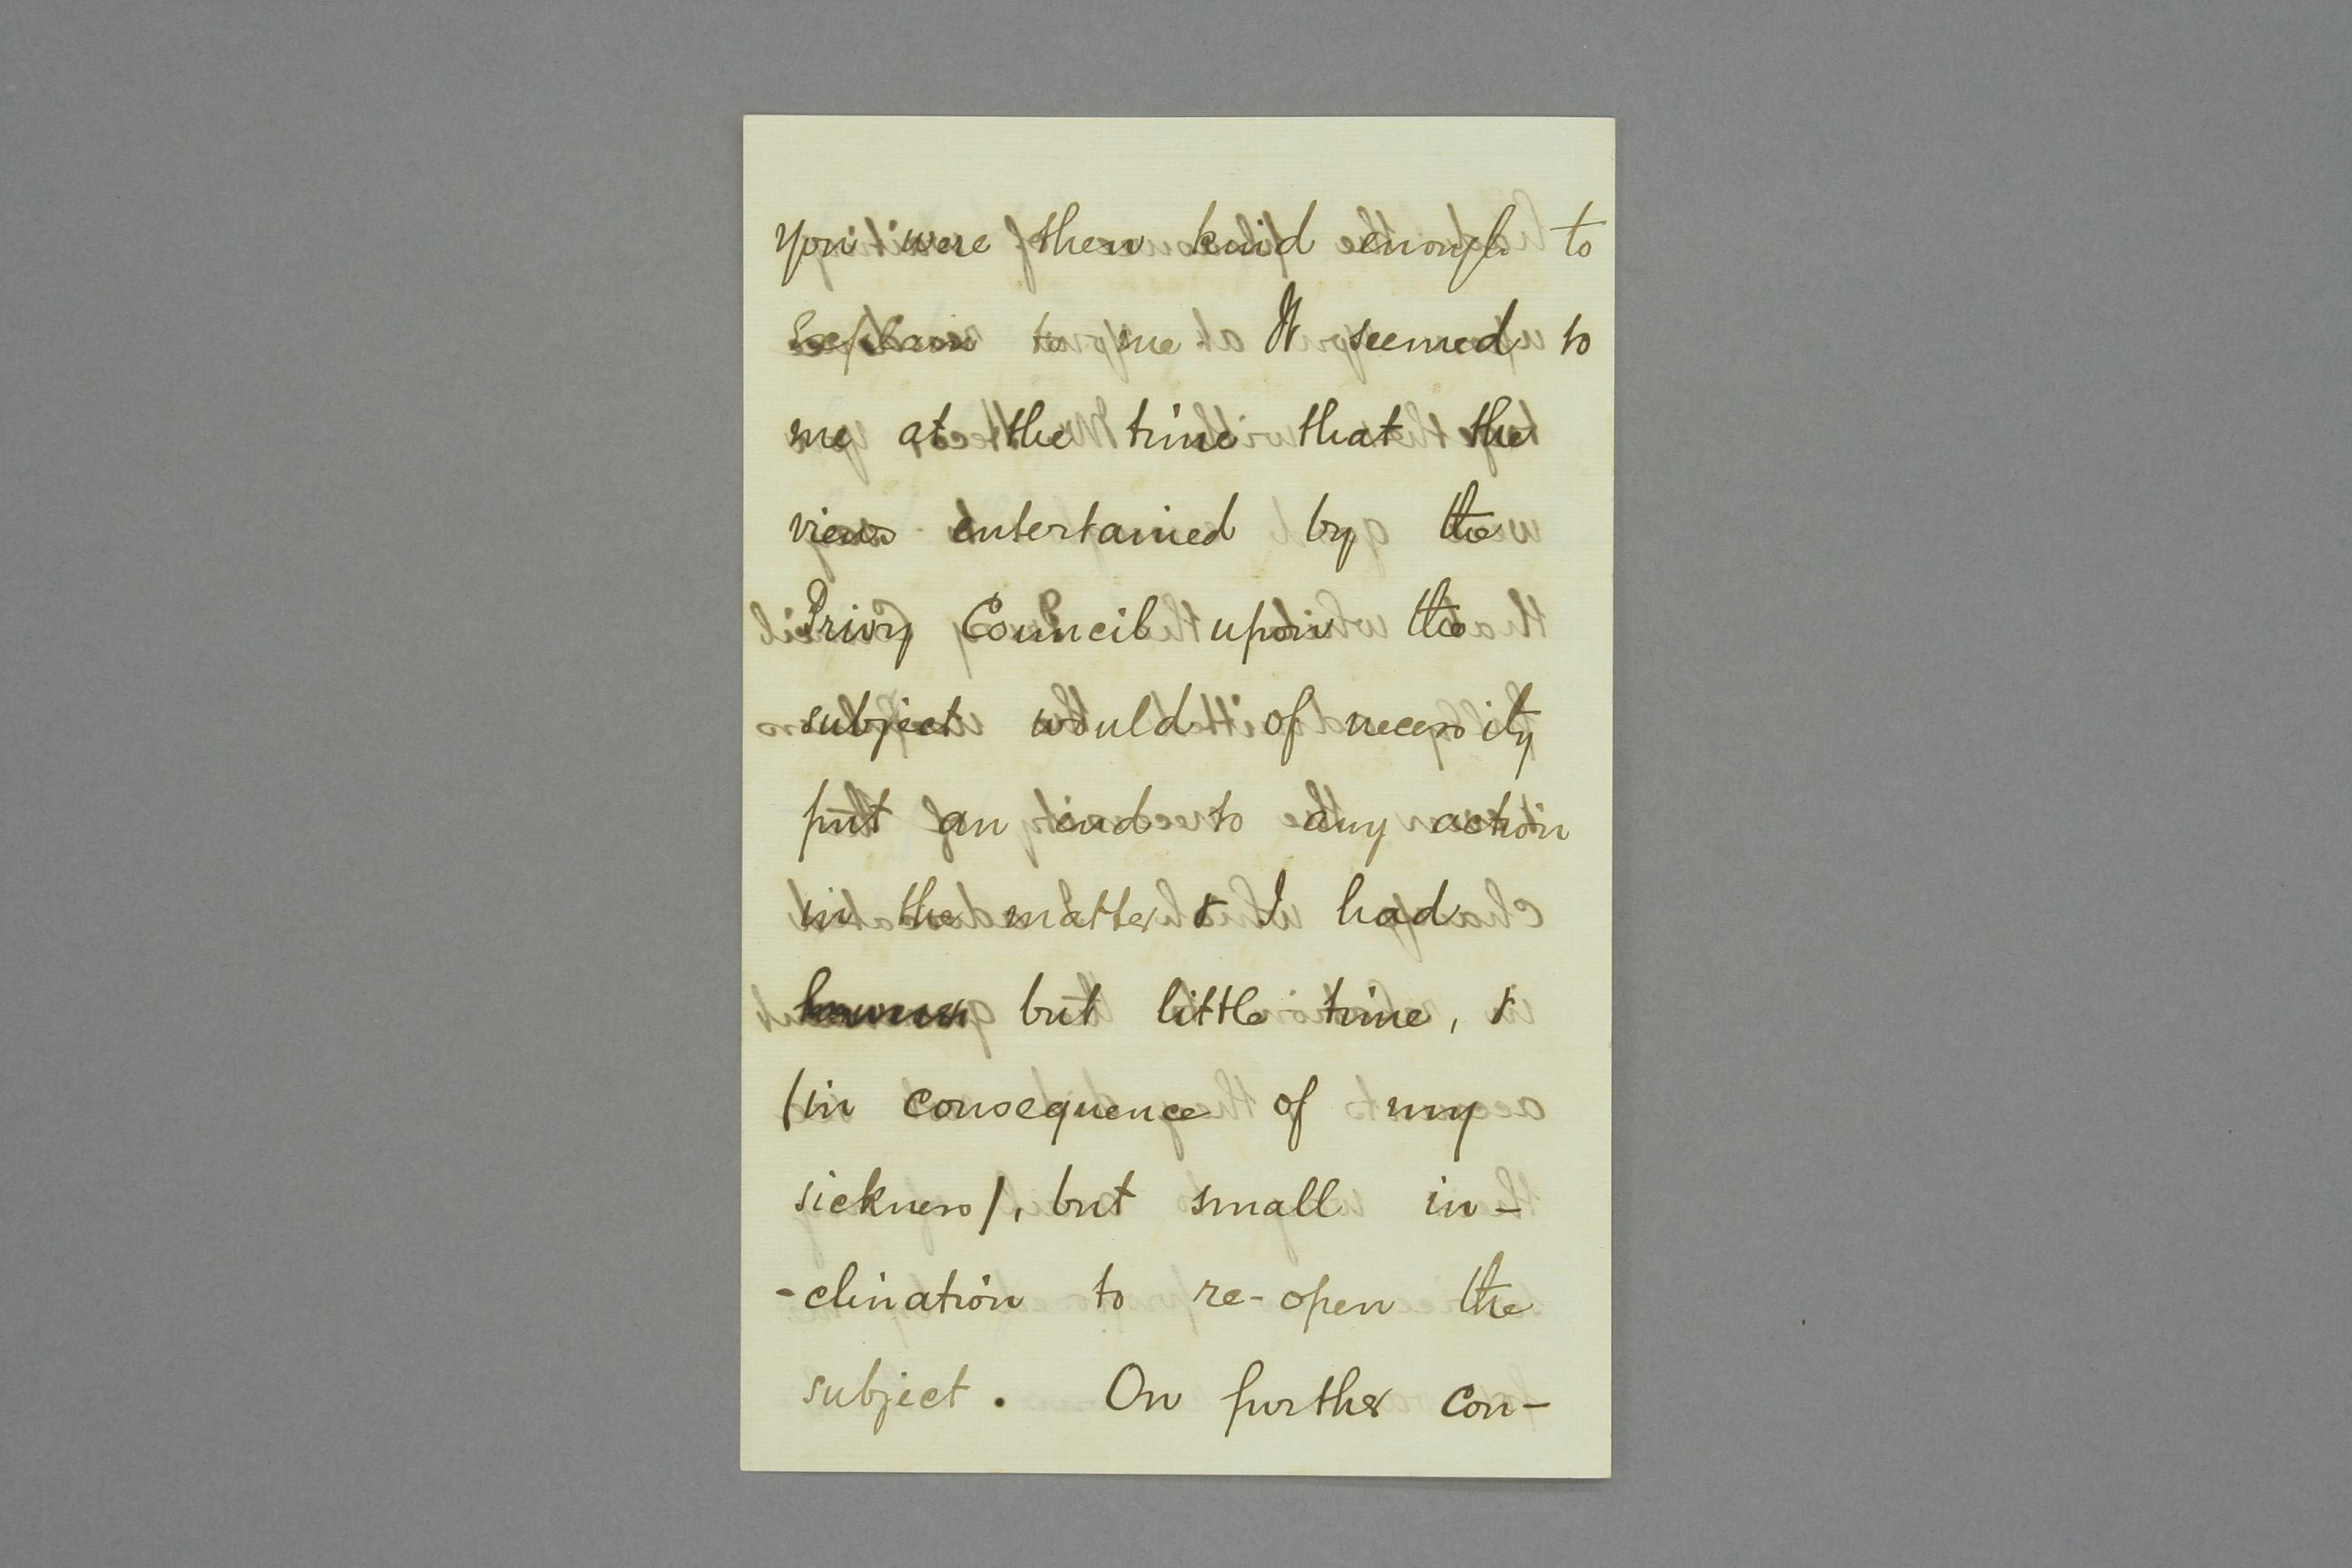 you were then kind enough to
explain to me. It seemed to
me at the time that the
views entertained by the
Privy Council upon the
subject would of necessity
put an end to any action
in the matter & I had
but little time, &
(in consequence of my
sickness), but small in-
-clination to re-open the
subject. On further con-